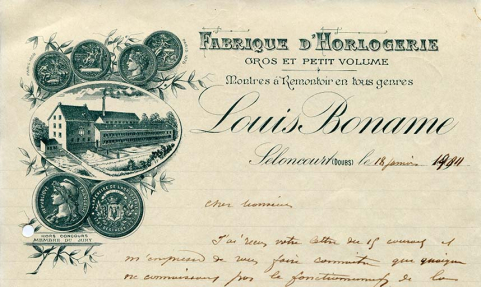 FABRIQUE D'HORLOGERIE
GROS ET PETIT VOLUME
Montres à Remontoir en tous genres
Louis Boname
Seloncourt (DOUBS) le 18 janvier 1904
HORS CONCOURS
MEMBRE DU JURY
Cher Monsieur
J'ai reçu votre lettre du 15 courant et
m'empresse de vous faire connaître que quoique
ne connaissant pas le fonctionnement de la